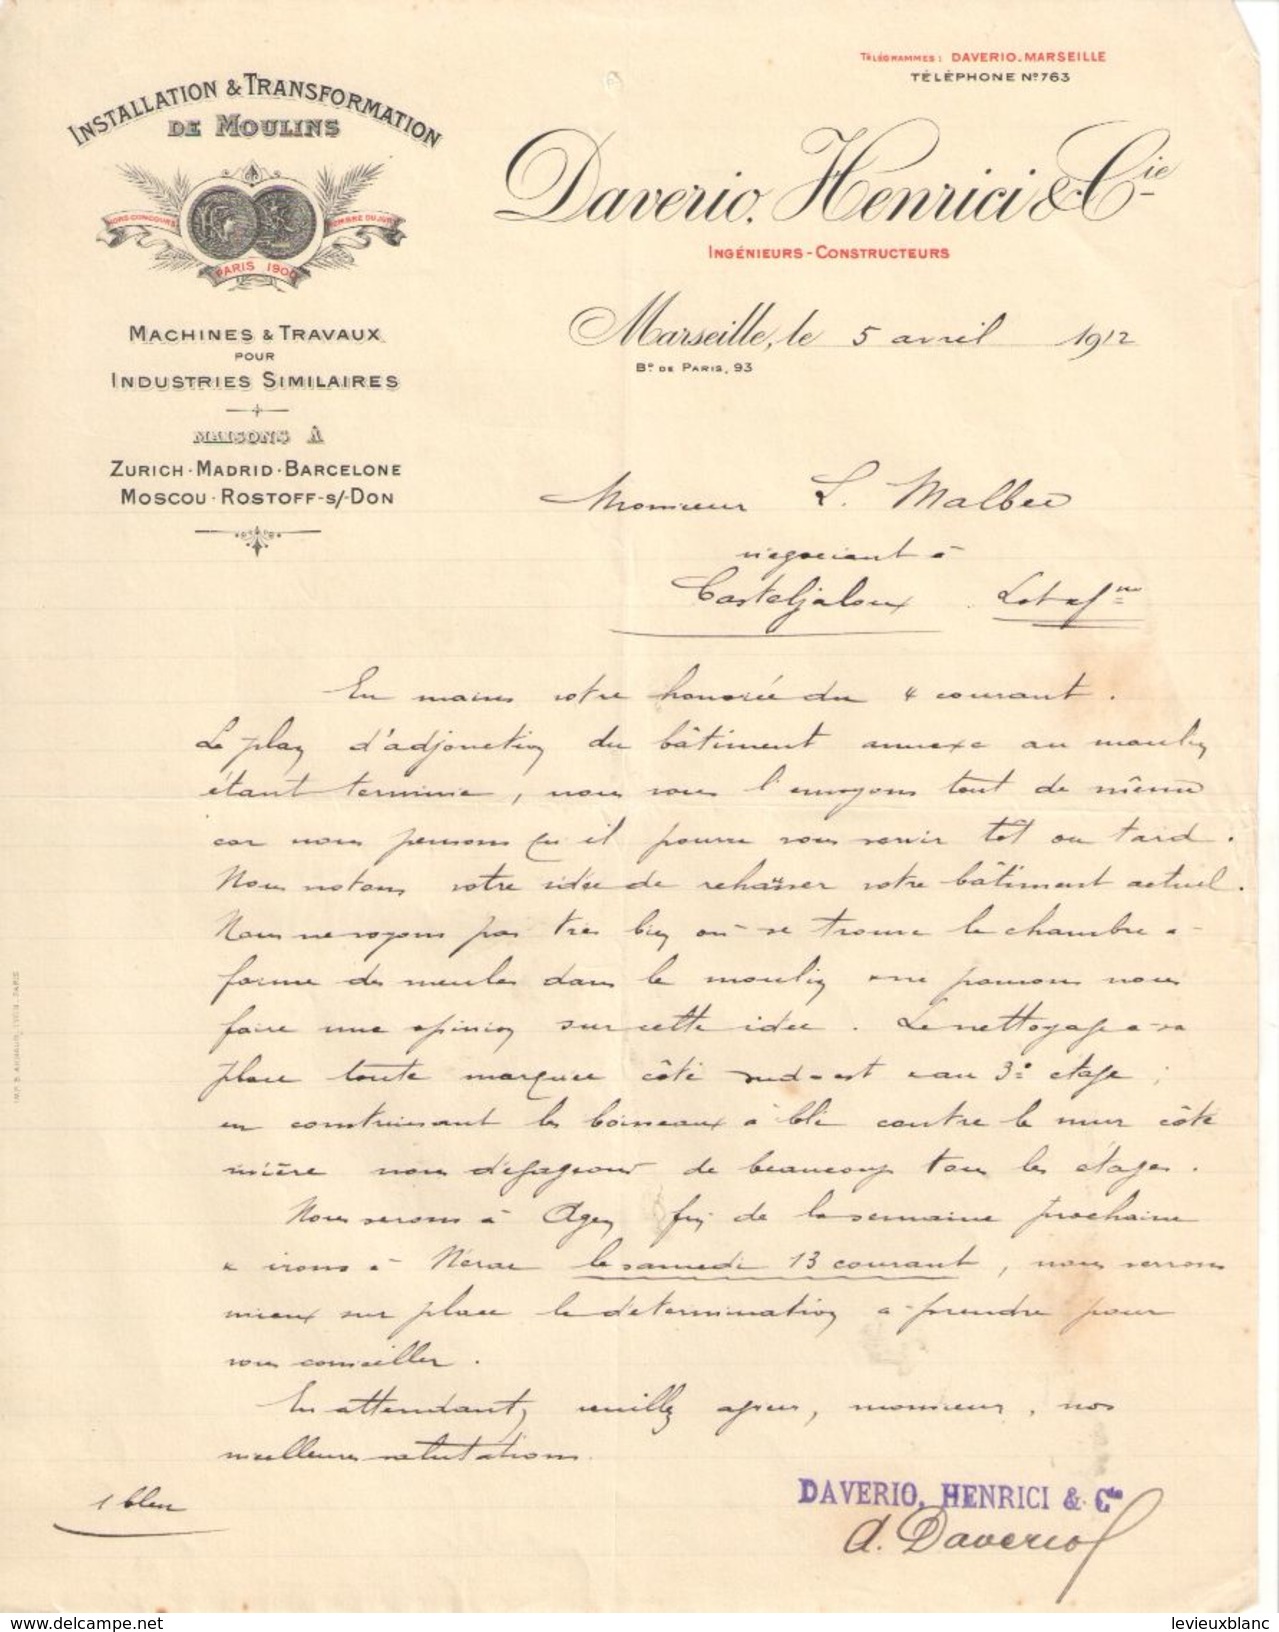 TÉLÉGRAMMES: DAVERIO. MARSEILLE
TÉLÉPHONE Nº 763
INSTALLATION & TRANSFORMATION
DE MOULINS
HORS-CONCOURS
MEMBRE DU JURY
PARIS 1900
Daverio, Henrici & Cie
INGÉNIEURS-CONSTRUCTEURS
MACHINES & TRAVAUX
POUR
INDUSTRIES SIMILAIRES
MAISONS À
ZURICH·MADRID·BARCELONE
MOSCOU·ROSTOFF-S/-DON
Marseille, le 5 avril 1912
Bd DE PARIS, 93
Monsieur L. Malbec
négociant à
Casteljaloux Lot et Gne
En mains votre honorée du 4 courant.
Le plan d'adjonction du bâtiment annexe au moulin
étant terminé, nous vous l'envoyons tout de même
car nous pensons qu'il pourra vous servir tôt ou tard.
Nous notons votre idée de rehausser votre bâtiment actuel.
Nous ne voyons pas très bien où se trouve la chambre à
farine des meules dans le moulin et ne pouvons nous
faire une opinion sur cette idée. Le nettoyage a sa
place toute marquée côté sud-est et au 3e étage;
en construisant les boisseaux à blé contre le mur côté
rivière nous dégageons de beaucoup tous les étages.
Nous serons à Agen fin de la semaine prochaine
et irons à Nérac le samedi 13 courant, nous verrons
mieux sur place la détermination à prendre pour
vous conseiller.
En attendant, veuillez agréer, monsieur, nos
meilleures salutations.
1 bleu
DAVERIO, HENRICI & Cie
A. Daverio
IMP. B. ARNAUD, LYON-PARIS
www.delcampe.net
levieuxblanc